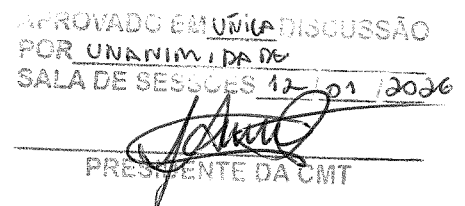 APROVADO EM UÑICA DISCUSSÃO
POR UNANIMIDADE
SALA DE SESSÕES 12/01/2026
PRESIDENTE DA CMT